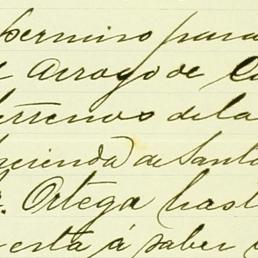 permiso para
Arroyo de
terrenos de la
hacienda de Santa
Ortega hast
esta á saber